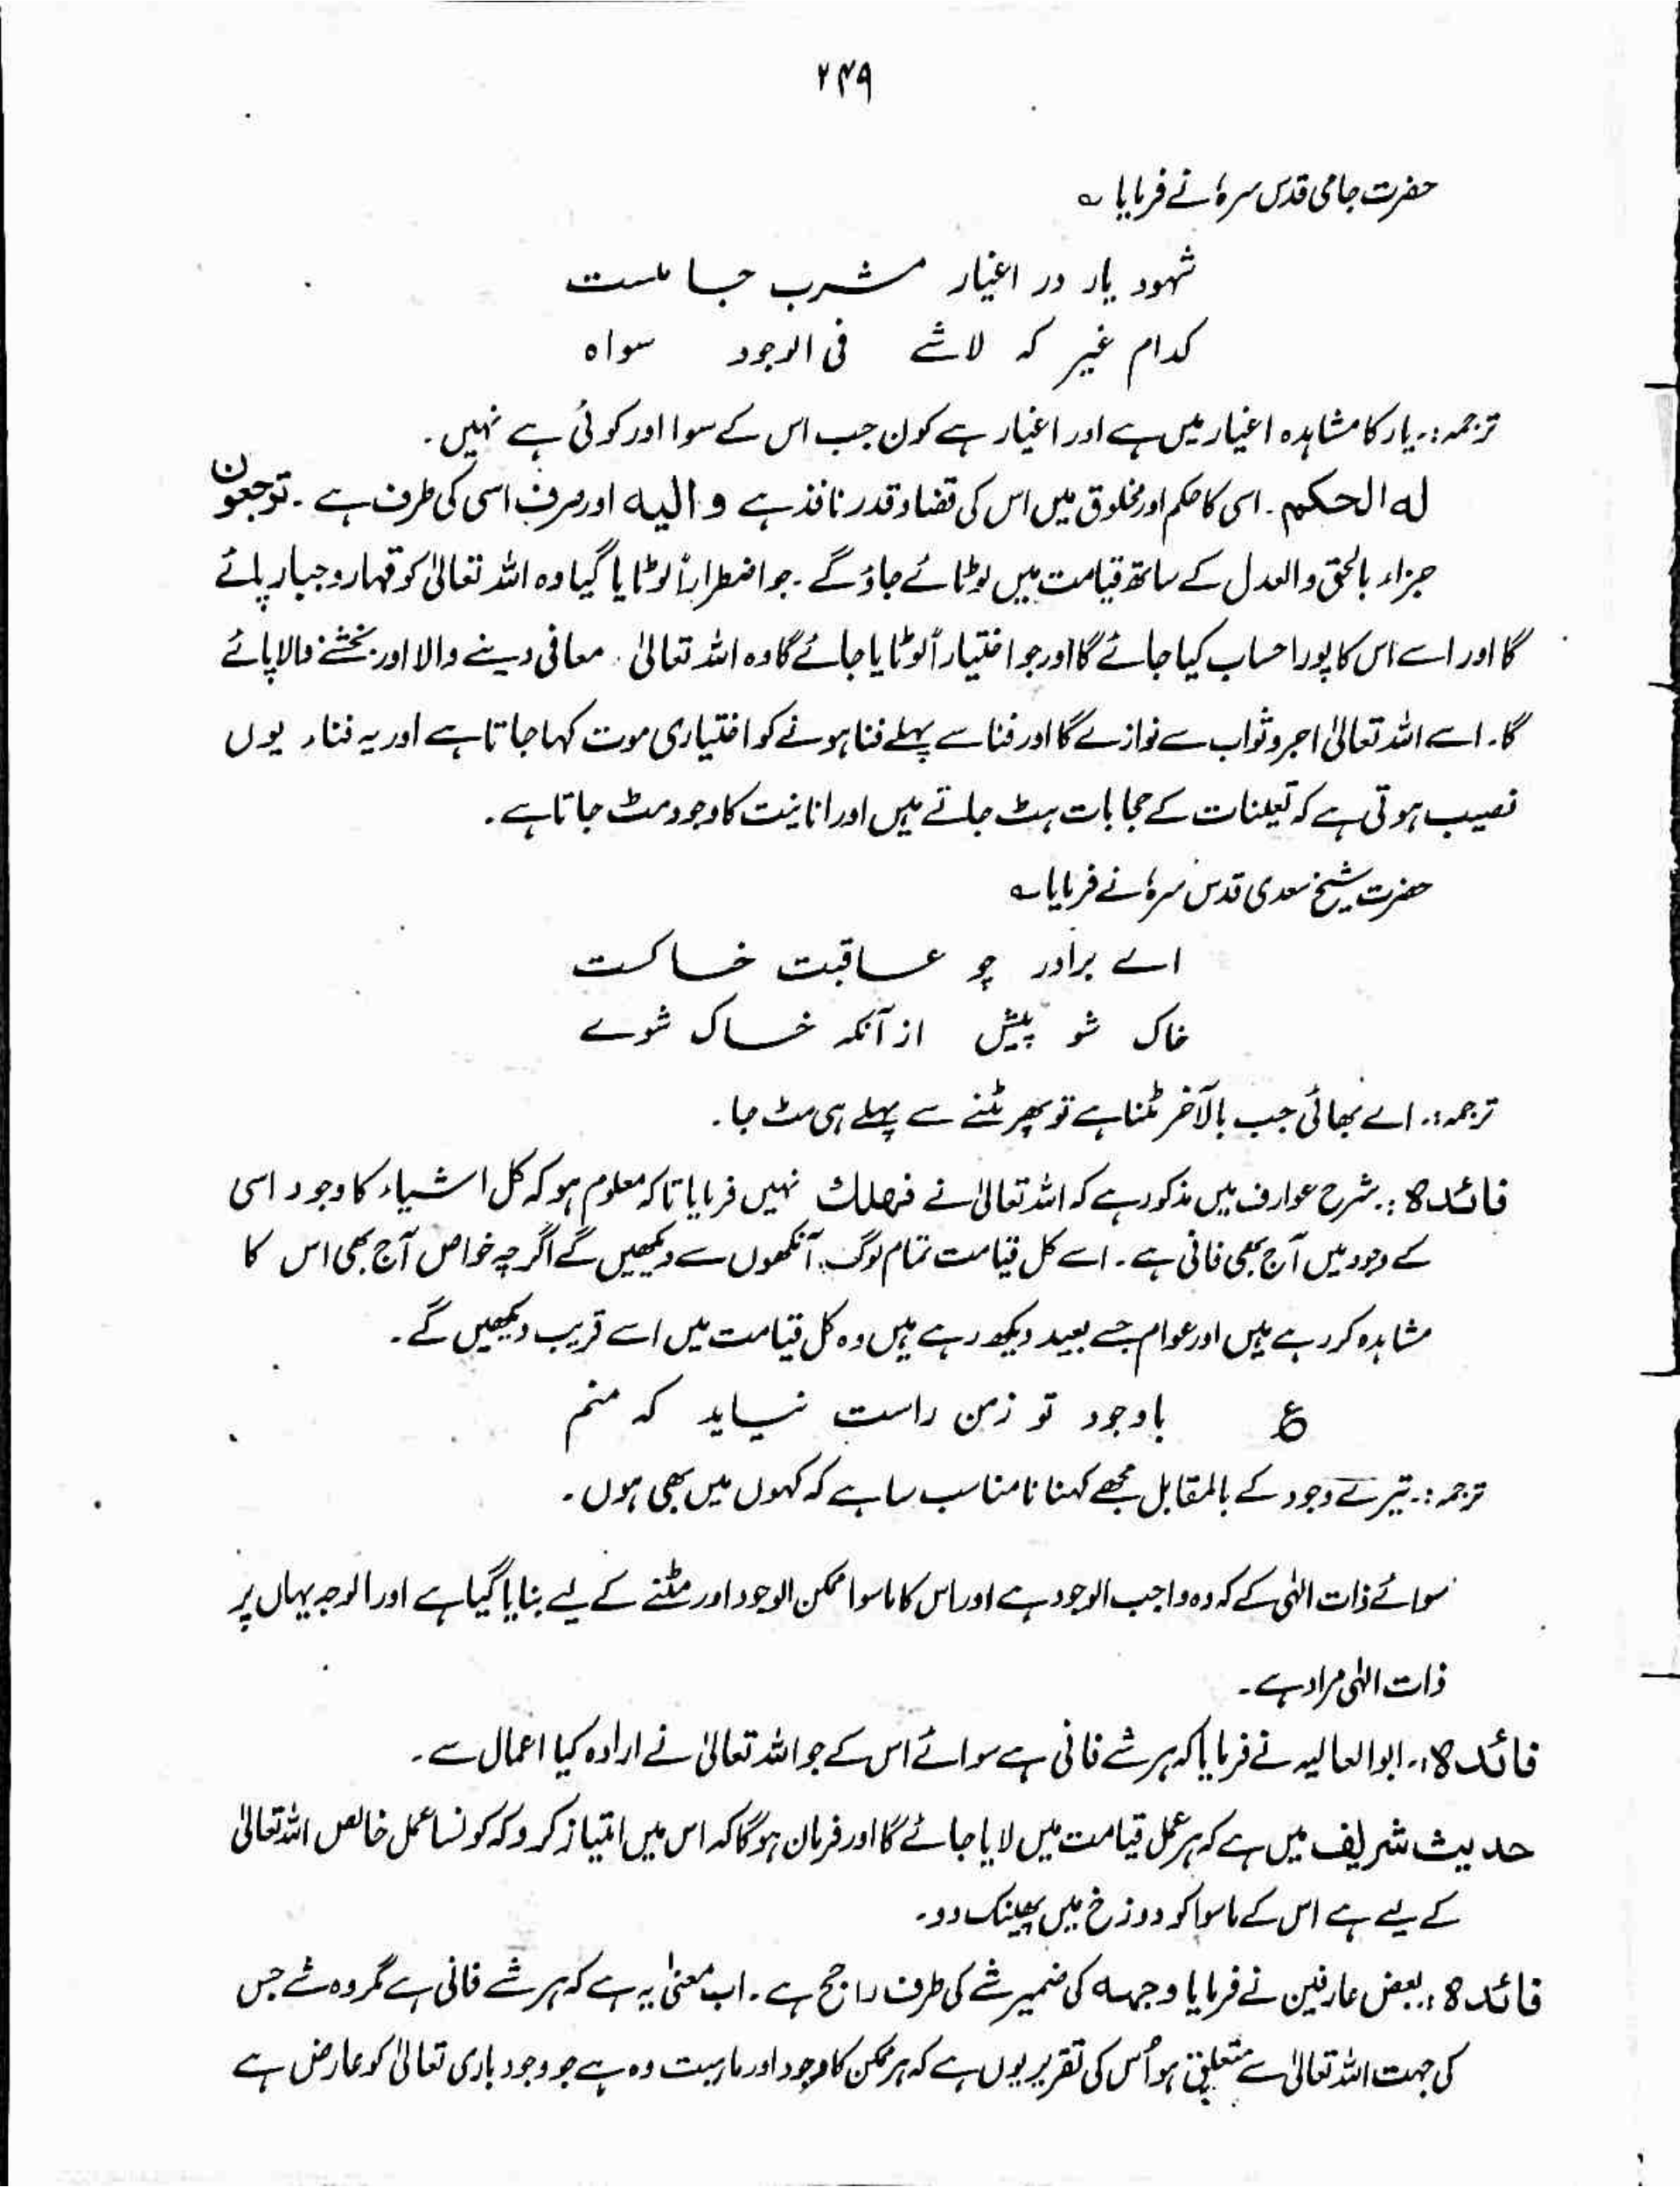 ۲۴۹
حضرت جامی قدس سرہٗ نے فرمایا ؎
شہود یار در اغیار مشرب جامیست
کدام غیر کہ لاشے فی الوجود سواہ
ترجمہ:۔ یار کا مشاہدہ اغیار میں ہے اور اغیار ہے کون جب اس کے سوا اور کوئی ہے نہیں۔
له الحكم۔ اسی کا حکم اور مخلوق میں اس کی قضا و قدر نافذ ہے و الیه اور صرف اسی کی طرف ہے۔ توجعون
جزاء بالحق والعدل کے ساتھ قیامت میں لوٹائے جاؤ گے۔ جو اضطراراً لوٹایا گیا وہ اللہ تعالیٰ کو قہار و جبار پائے
گا اور اسے اس کا پورا حساب کیا جائے گا اور جو اختیاراً لوٹایا جائے گا وہ اللہ تعالیٰ معافی دینے والا اور بخشنے والا پائے
گا۔ اسے اللہ تعالیٰ اجر و ثواب سے نوازے گا اور فنا سے پہلے فنا ہونے کو اختیاری موت کہا جاتا ہے اور یہ فناء یوں
نصیب ہوتی ہے کہ تعینات کے حجابات ہٹ جاتے ہیں اور انانیت کا وجود مٹ جاتا ہے۔
حضرت شیخ سعدی قدس سرہٗ نے فرمایا ؎
اے برادر چو عاقبت خاکست
خاک شو پیش از آنکہ خاک شوے
ترجمہ:۔ اے بھائی جب بالآخر مٹنا ہے تو پھر مٹنے سے پہلے ہی مٹ جا۔
فائدہ:۔ شرح عوارف میں مذکور ہے کہ اللہ تعالیٰ نے فهلك نہیں فرمایا تاکہ معلوم ہو کہ کل اشیاء کا وجود اسی
کے وجود میں آج بھی فانی ہے۔ اسے کل قیامت تمام لوگ آنکھوں سے دیکھیں گے اگرچہ خواص آج بھی اس کا
مشاہدہ کر رہے ہیں اور عوام جسے بعید دیکھ رہے ہیں وہ کل قیامت میں اسے قریب دیکھیں گے۔
ع باوجود تو زمن راست نیاید کہ منم
ترجمہ:۔ تیرے وجود کے بالمقابل مجھے کہنا نامناسب سا ہے کہ کہوں میں بھی ہوں۔
سوائے ذات الٰہی کے کہ وہ واجب الوجود ہے اور اس کا ماسوا ممکن الوجود اور مٹنے کے لیے بنایا گیا ہے اور الوجہ یہاں پر
ذات الٰہی مراد ہے۔
فائدہ:۔ ابوالعالیہ نے فرمایا کہ ہر شے فانی ہے سوائے اس کے جو اللہ تعالیٰ نے ارادہ کیا اعمال سے۔
حدیث شریف میں ہے کہ ہر عمل قیامت میں لایا جائے گا اور فرمان ہوگا کہ اس میں امتیاز کرو کہ کونسا عمل خالص اللہ تعالیٰ
کے لیے ہے اس کے ماسوا کو دوزخ میں پھینک دو۔
فائدہ: بعض عارفین نے فرمایا وجهه کی ضمیر شے کی طرف راجح ہے۔ اب معنیٰ یہ ہے کہ ہر شے فانی ہے مگر وہ شے جس
کی جہت اللہ تعالیٰ سے متعلق ہو اُس کی تقریر یوں ہے کہ ہر ممکن کا وجود اور ماہیت وہ ہے جو وجود باری تعالیٰ کو عارض ہے